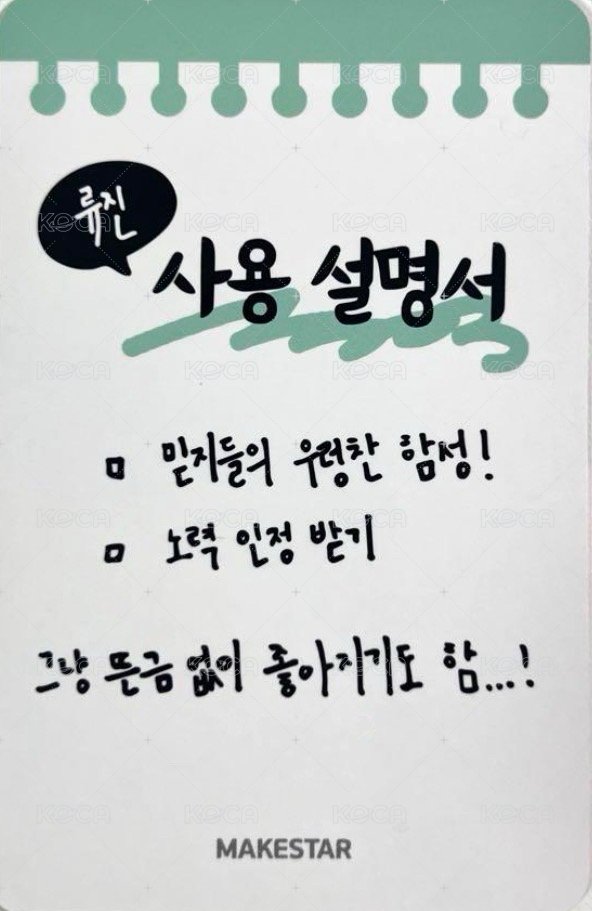 류진
사용 설명서
믿지들의 우렁찬 함성!
노력 인정 받기
그냥 뜬금 없이 좋아지기도 함...!
MAKESTAR